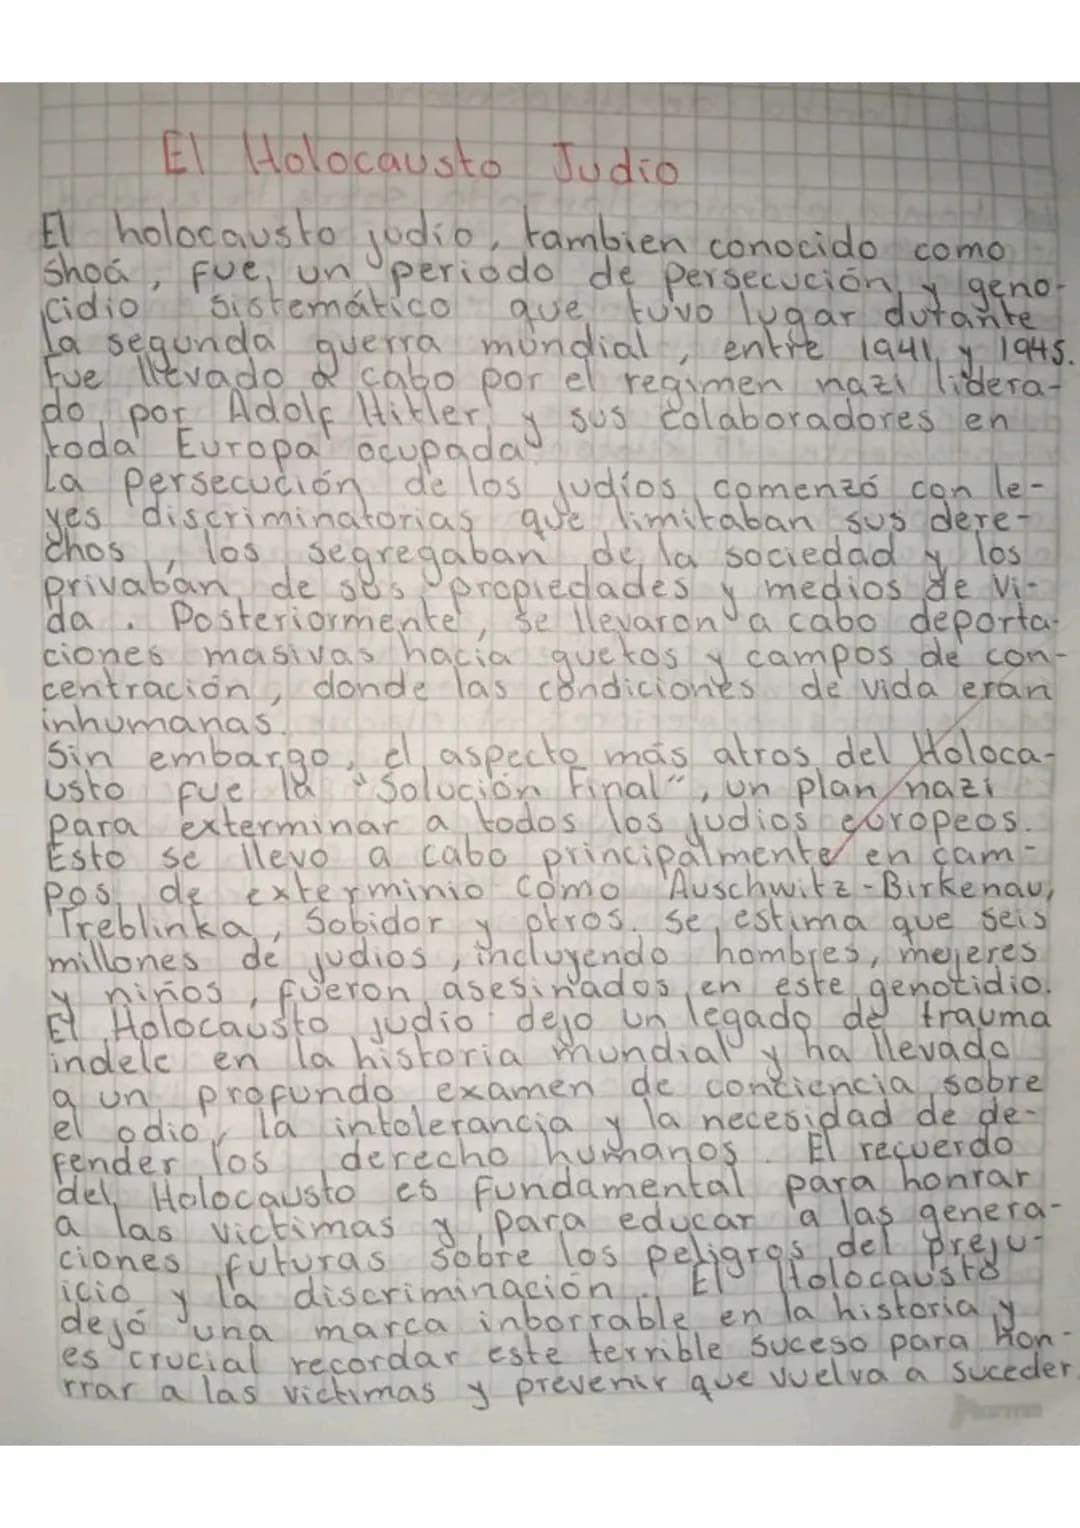 El Holocausto Judio
El holocausto judío, tambien conocido como
Shoá, fue un periodo de persecución y geno-
cidio sistemático que tuvo lugar durante
la segunda guerra mundial, entre 1941 y 1945.
Fue llevado a cabo por el regimen nazi lidera-
do por Adolf Hitler y sus colaboradores en
toda Europa ocupada
La persecución de los judíos comenzó con le-
yes discriminatorias que limitaban sus dere-
chos, los segregaban de la sociedad y los
privaban de sus propiedades y medios de vi-
da. Posteriormente, se llevaron a cabo deporta-
ciones masivas hacia guetos y campos de con-
centración, donde las condiciones de vida eran
inhumanas.
Sin embargo, el aspecto más atros del Holoca-
usto fue la "Solución Final", un plan nazi
para exterminar a todos los judios europeos.
Esto se llevo a cabo principalmente en cam-
pos de exterminio como Auschwitz-Birkenau,
Treblinka, Sobidor y otros. Se estima que seis
millones de judios, incluyendo hombres, mejeres
y niños, fueron asesinados en este genocidio.
El Holocausto judio dejo un legado de trauma
indele en la historia mundial y ha llevado
a un profundo examen de conciencia sobre
el odio, la intolerancia y la necesidad de de-
fender los derecho humanos. El recuerdo
del Holocausto es fundamental para honrar
a las victimas y para educar a las genera-
ciones futuras sobre los peligros del preju-
icio y la discriminación. El Holocausto
dejó una marca inborrable en la historia y
es crucial recordar este terrible suceso para hon-
rrar a las victimas y prevenir que vuelva a suceder.
Norma